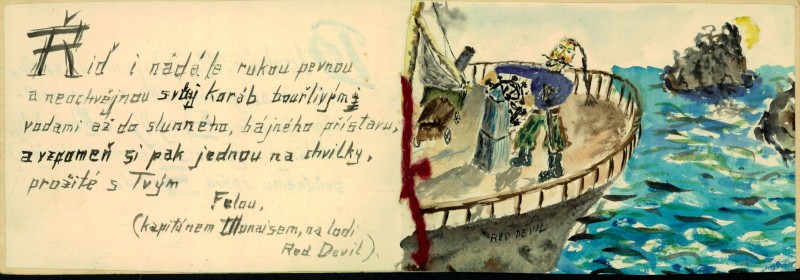 Řiď i nádále rukou pevnou
a neochvějnou svůj koráb bouřlivými
vodami až do slunného, bájného přístavu,
a vzpomeň si pak jednou na chvilky,
prožité s Tvým
Felou,
(kapitánem Monaisem, na lodi
Red Devil).
RED DEVIL